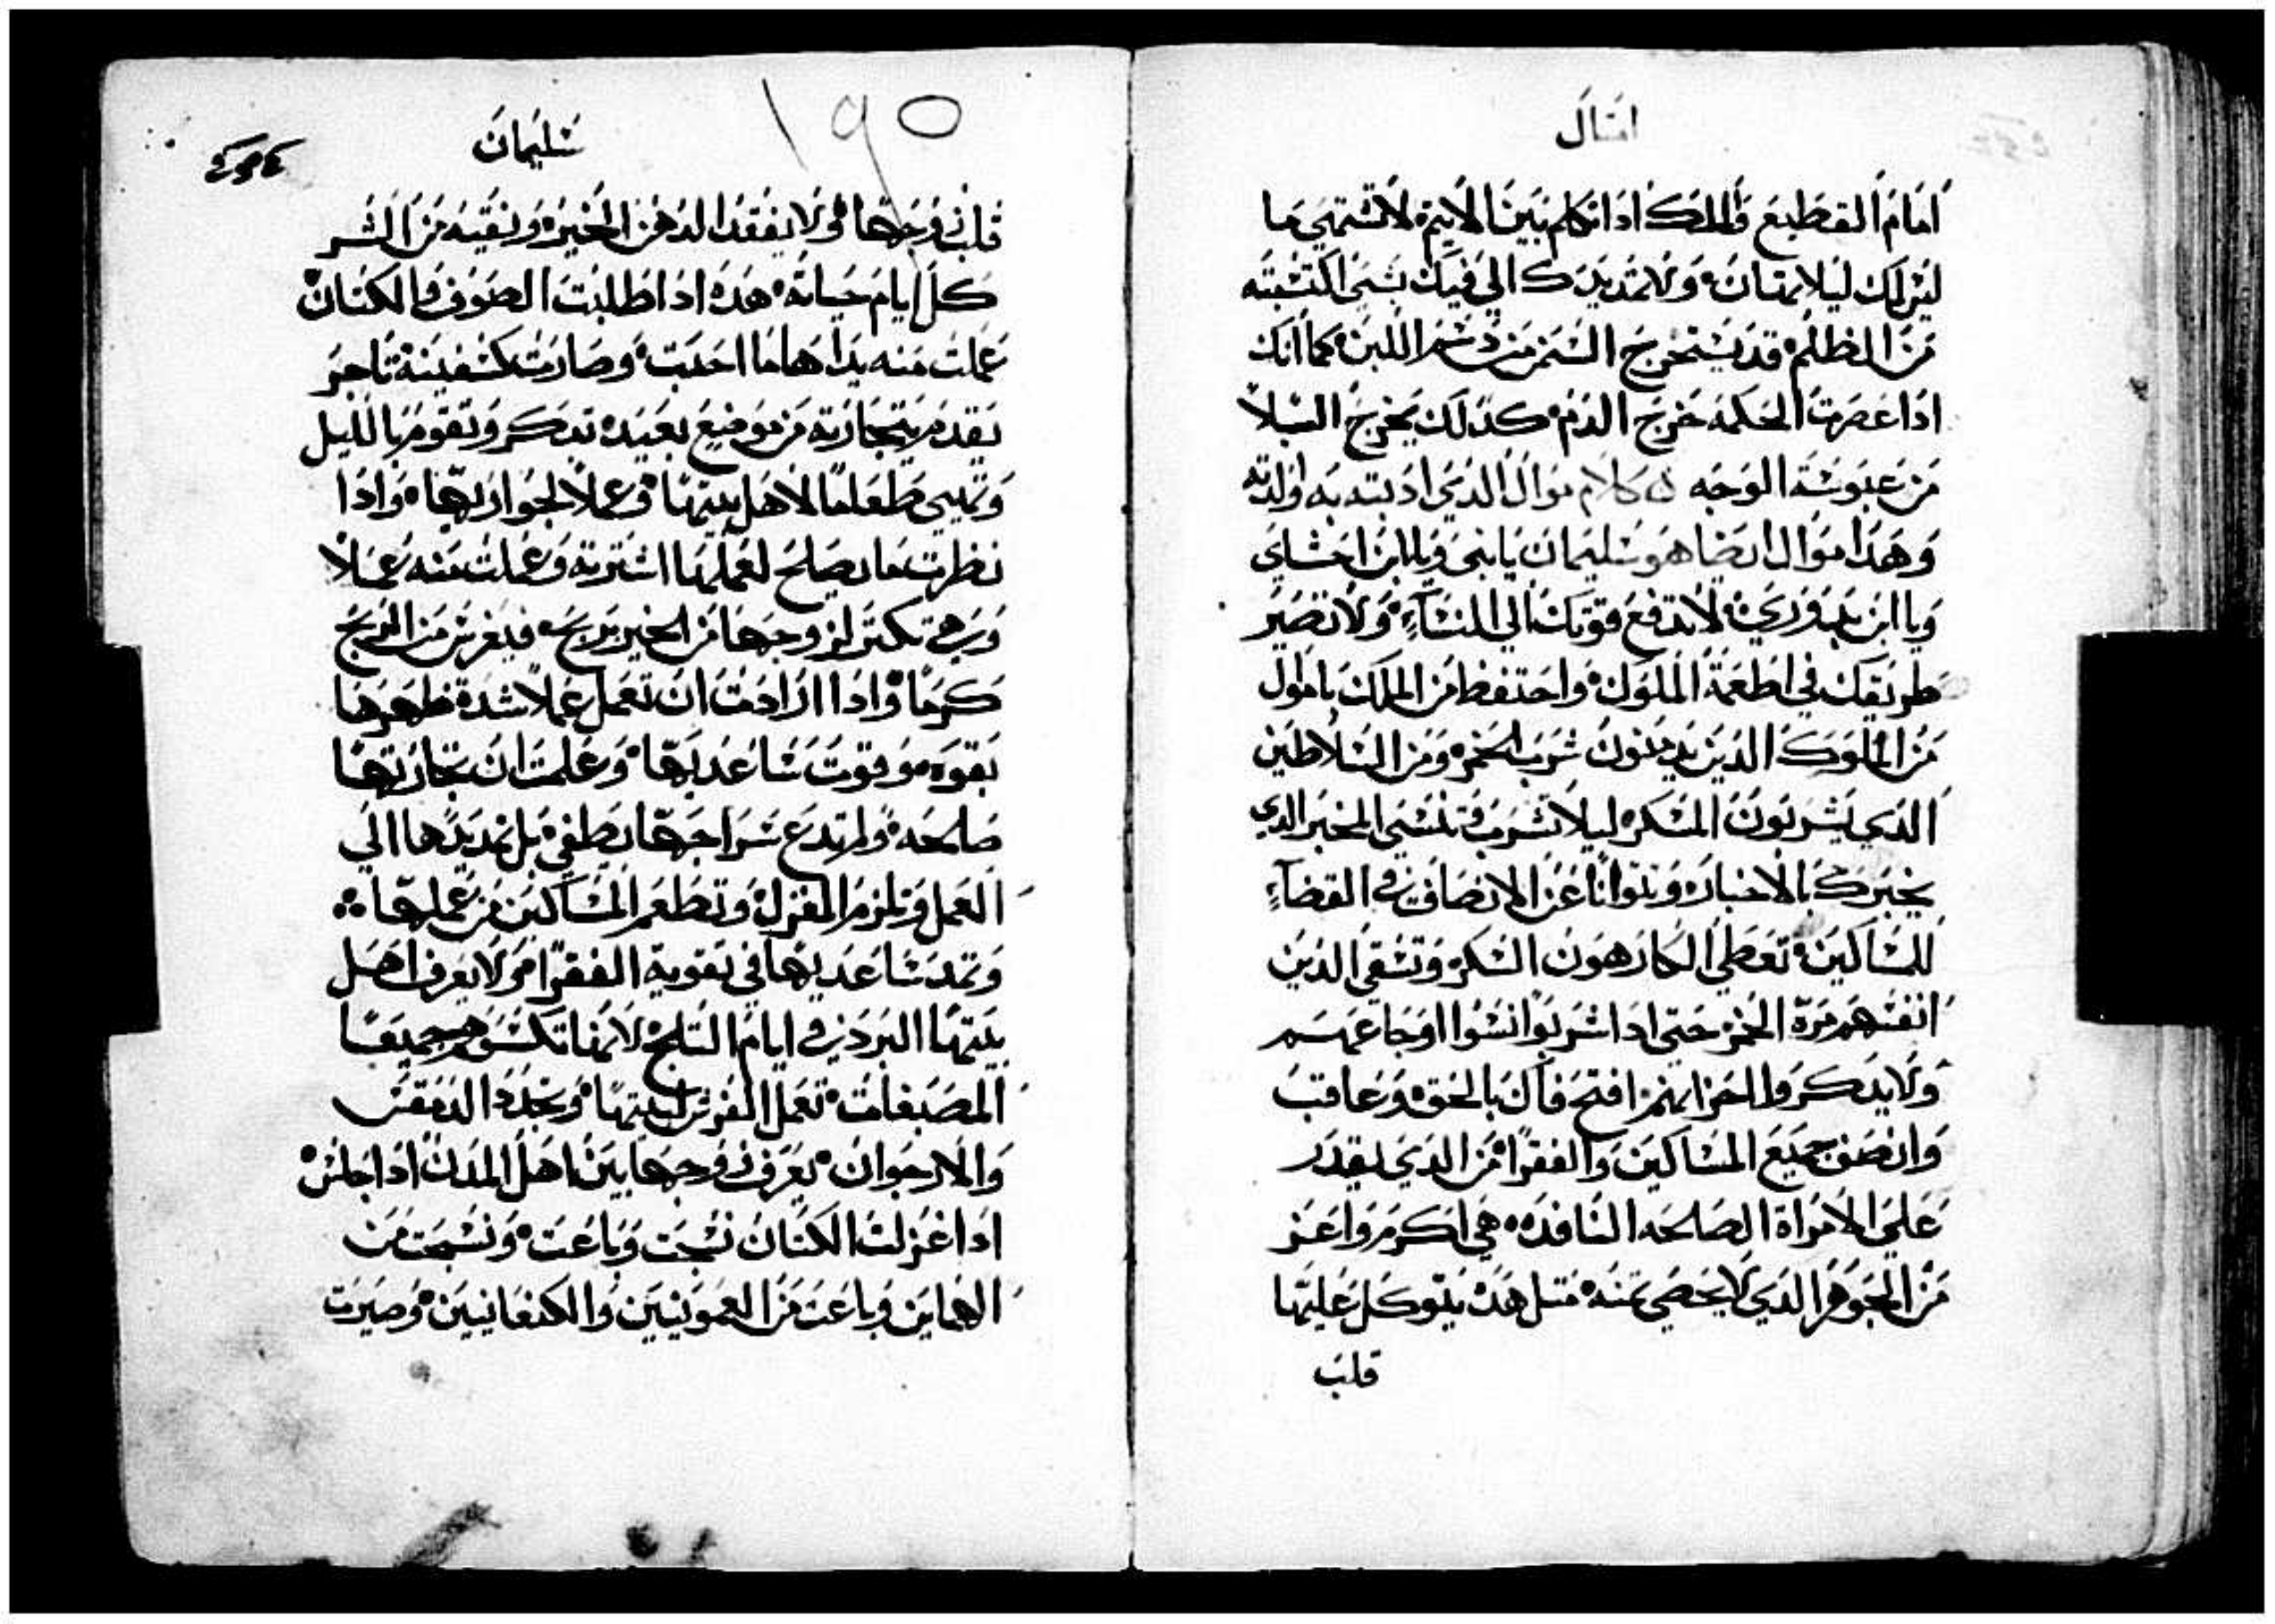 امثال
امام القطيع والملك اذا تكلم بين الامم لا تشتهي ما
ليس لك ليلا تهان ولا تمد يدك الي فيك بشي اكتسبته
من الظلم قد يستخرج السمن من دسم اللبن كما انك
اذا عصرت الحكمه خرج الدم كذلك يخرج البلا
من عبوسة الوجه كلام موال الذي ادبته به والدته
وهذا موال ايضا هو سليمان يا بني ويا ابن احشاي
ويا ابن بدوري لا تدفع قوتك الي النساء ولا تصير
طريقك في اطعمة الملوك واحتفظ من الملك ياموال
من الملوك الذين يدمنون شرب الخمر ومن السلاطين
الذي يشربون المسكر ليلا تشرب فتنسي الخبر الذي
يخبرك بالاخبار وتتوانا عن الانصاف في القضاء
للمساكين تعطي الكارهون السكر وتسقي الذين
انفسهم مرة الخمر حتي اذا شربوا نسوا اوجاعهم
ولا يدكروا احزانهم افتح فاك بالحق وعاقب
وانصف جميع المساكين والفقرا من الذي يقدر
علي الامراة الصالحه النافده هي اكرم واعز
من الجوهر الذي لا يحصي تمنه متل هده يتوكل عليها
قلب
١٩٥
سليمان
قلب زوجها ولا يفقد الدهن الخير وتقيه من الشر
كل ايام حياته هده ادا طلبت الصوف والكتان
عملت منه يداها ما احبت وصارت كسفينة تاجر
يقدم بتجارته من موضع بعيده تبكر وتقوم بالليل
وتهيي طعاما لاهل بيتها وعملا لجواريها وادا
نظرت ما يصلح لعملها اشترته وعملت منه عملا
وهي تكتر لزوجها من الخير يربح فيغرس من الربح
كرما وادا ارادت ان تعمل عملا شدة ظهرها
بقوه وقوت ساعديها وعلمت ان تجارتها
صالحه ولم تدع سراجها يطفي بل تمد يدها الي
العمل وتلزم المغزل وتطعم المساكين من عملها
وتمد ساعديها في تقوية الفقرا ولا يعرف اهل
بيتها البرد في ايام التلج لانها تكسوهم جميعا
المصبغات تعمل الفرش لبيتها وتجدد الدمقس
والارجوان يعرف زوجها بين اهل المدن ادا جلس
ادا غزلت الكتان نسجت وباعت ونسجت من
الهماين وباعت من العمونيين والكنعانيين وصيرت